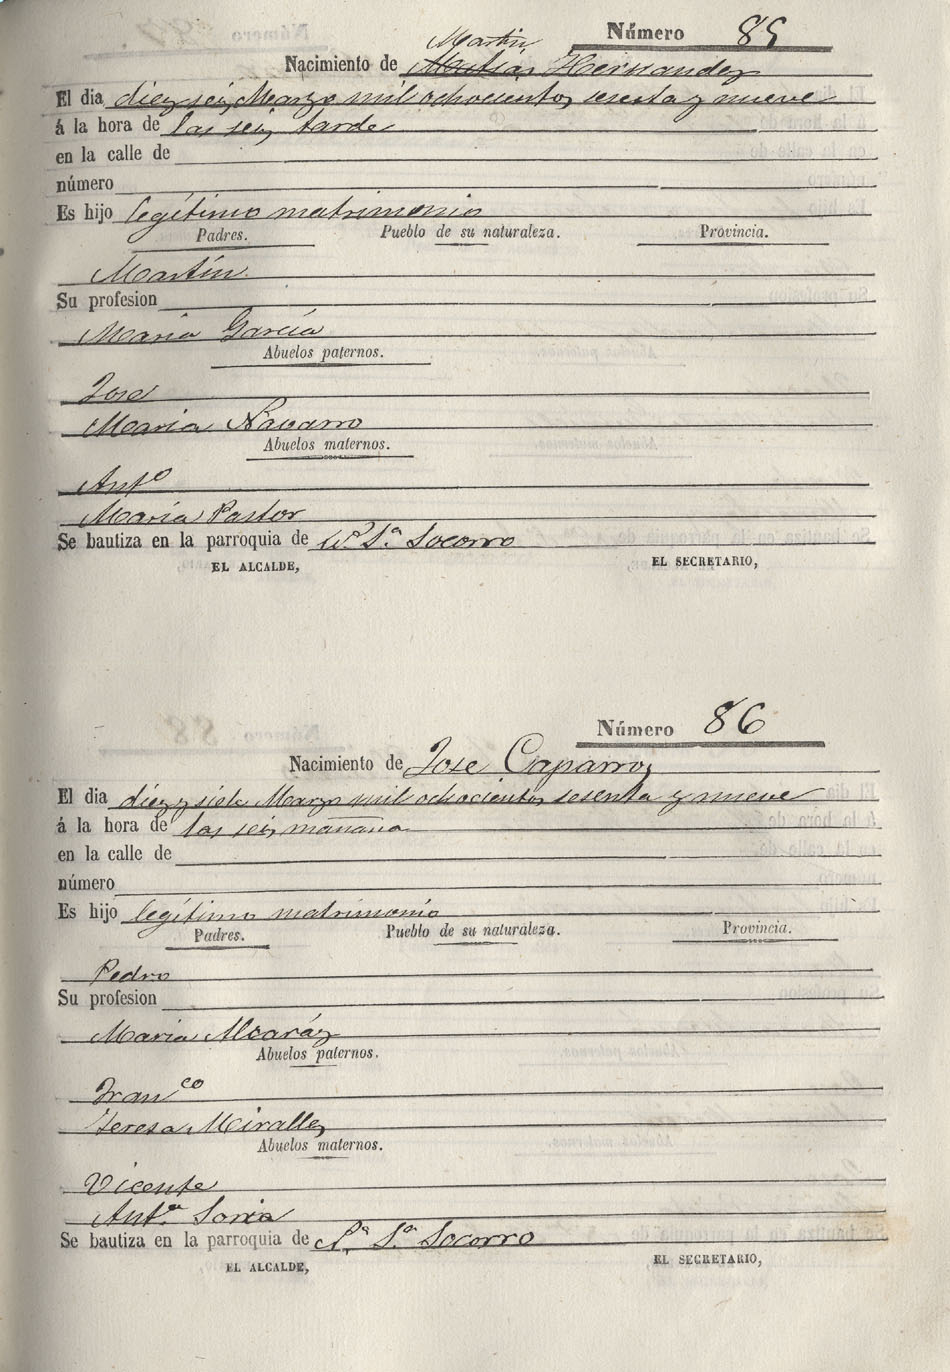 Número 85
Martin
Nacimiento de Matias Hernandez
El dia diez y seis Marzo mil ochocientos sesenta y nueve
á la hora de las seis tarde
en la calle de
número
Es hijo legítimo matrimonio
Padres. Pueblo de su naturaleza. Provincia.
Martín
Su profesion
Maria García
Abuelos paternos.
Jose
Maria Navarro
Abuelos maternos.
Antº
Maria Pastor
Se bautiza en la parroquia de Sª Socorro
EL ALCALDE, EL SECRETARIO,
Número 86
Nacimiento de Jose Caparroz
El dia diez y siete Marzo mil ochocientos sesenta y nueve
á la hora de las seis mañana
en la calle de
número
Es hijo legítimo matrimonio
Padres. Pueblo de su naturaleza. Provincia.
Pedro
Su profesion
Maria Alcaráz
Abuelos paternos.
Franco
Teresa Miralles
Abuelos maternos.
Vicente
Antª Soria
Se bautiza en la parroquia de Sª Socorro
EL ALCALDE, EL SECRETARIO,